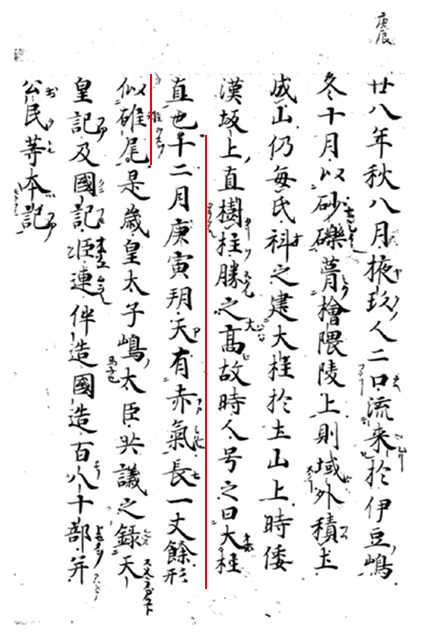 庚辰
廿八年秋八月掖玖人二口流来於伊豆嶋
冬十月以砂礫葺檜隈陵上則域外積土
成山仍每氏科之建大柱於土山上時倭
漢坂上直樹柱勝之髙故時人号之曰大柱
直也十二月庚寅朔天有赤氣長一丈餘形
似雉尾是歳皇太子嶋大臣共議之録天
皇記及國記臣連伴造國造百八十部并
公民等本記